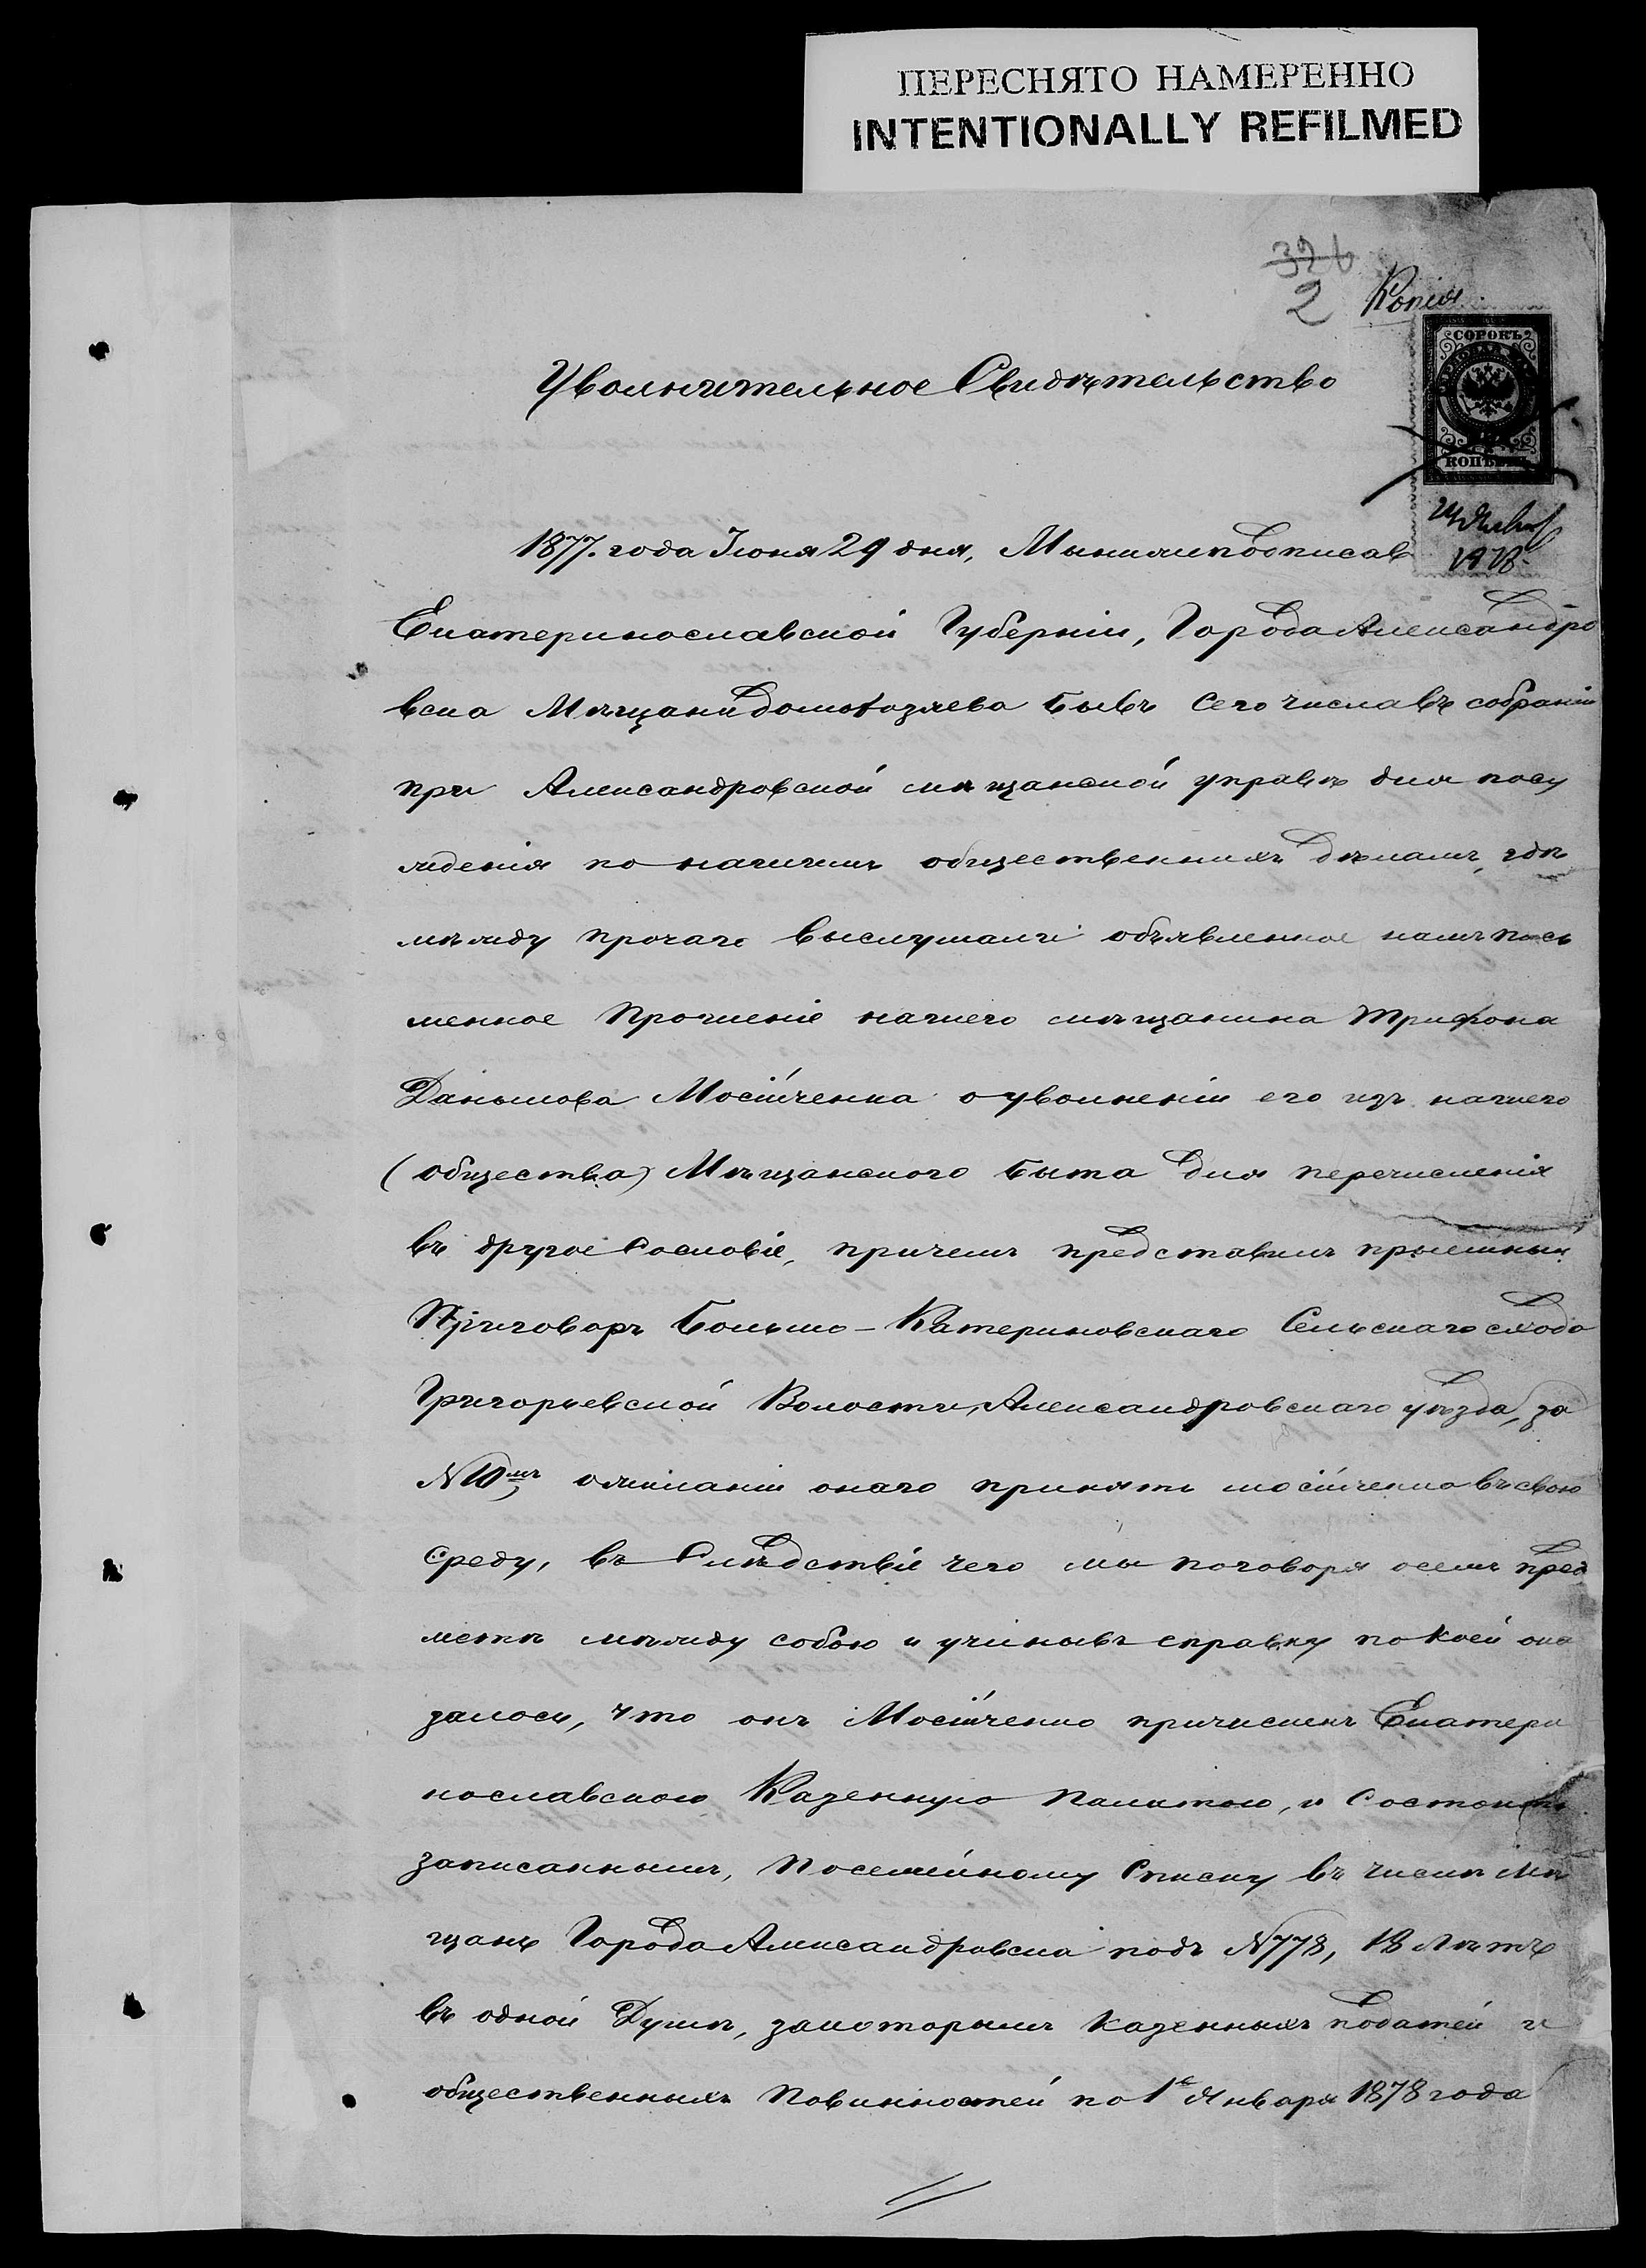 ПЕРЕСНЯТО НАМЕРЕННО
INTENTIONALLY REFILMED
326
2 Копия
Увольнительное Свидѣтельство
СОРОКЪ
КОПѢЕКЪ
1878
1877. года Іюня 29 дня, Мынижеподписав
Екатеринославской Губерніи, Города Александро
вска Мѣщани домохозяева бывъ сего числа въ собраніи
при Александровской мѣщанской управѣ для посу
ждения по нашимъ общественнимъ дѣламъ, гдѣ
мѣжду прочаго выслушали объявленное намъ пись
менное прошеніе нашего мѣщанина Трифона
Данылова Мосійченка о увольненіи его изъ нашего
(общества) Мѣщанского быта для перечисленія
въ другое сословіе, причемъ представилъ прыемный
Приговоръ Больше-Катериновскаго Сельскаго схода
Григорьевской Волости, Александровскаго уѣзда, за
N 10мъ, ожиланіи онаго принять мосійченка въ свою
среду, въ Слѣдствіе чего мы поговоря осемъ пред
метѣ мѣжду собою и учинывъ справку по коей ока
залось, что онъ Мосійченко причисленъ Екатери
нославскою Казенную Палатою, и Состоитъ
записаннымъ, Посемѣйному Списку въ числѣ Мѣ
щанъ Города Александровска подъ N778, 18 Лѣтъ
въ одной Душѣ, закоторымъ казенныхъ податей и
общественныхъ Повинностей по 1е Января 1878 года